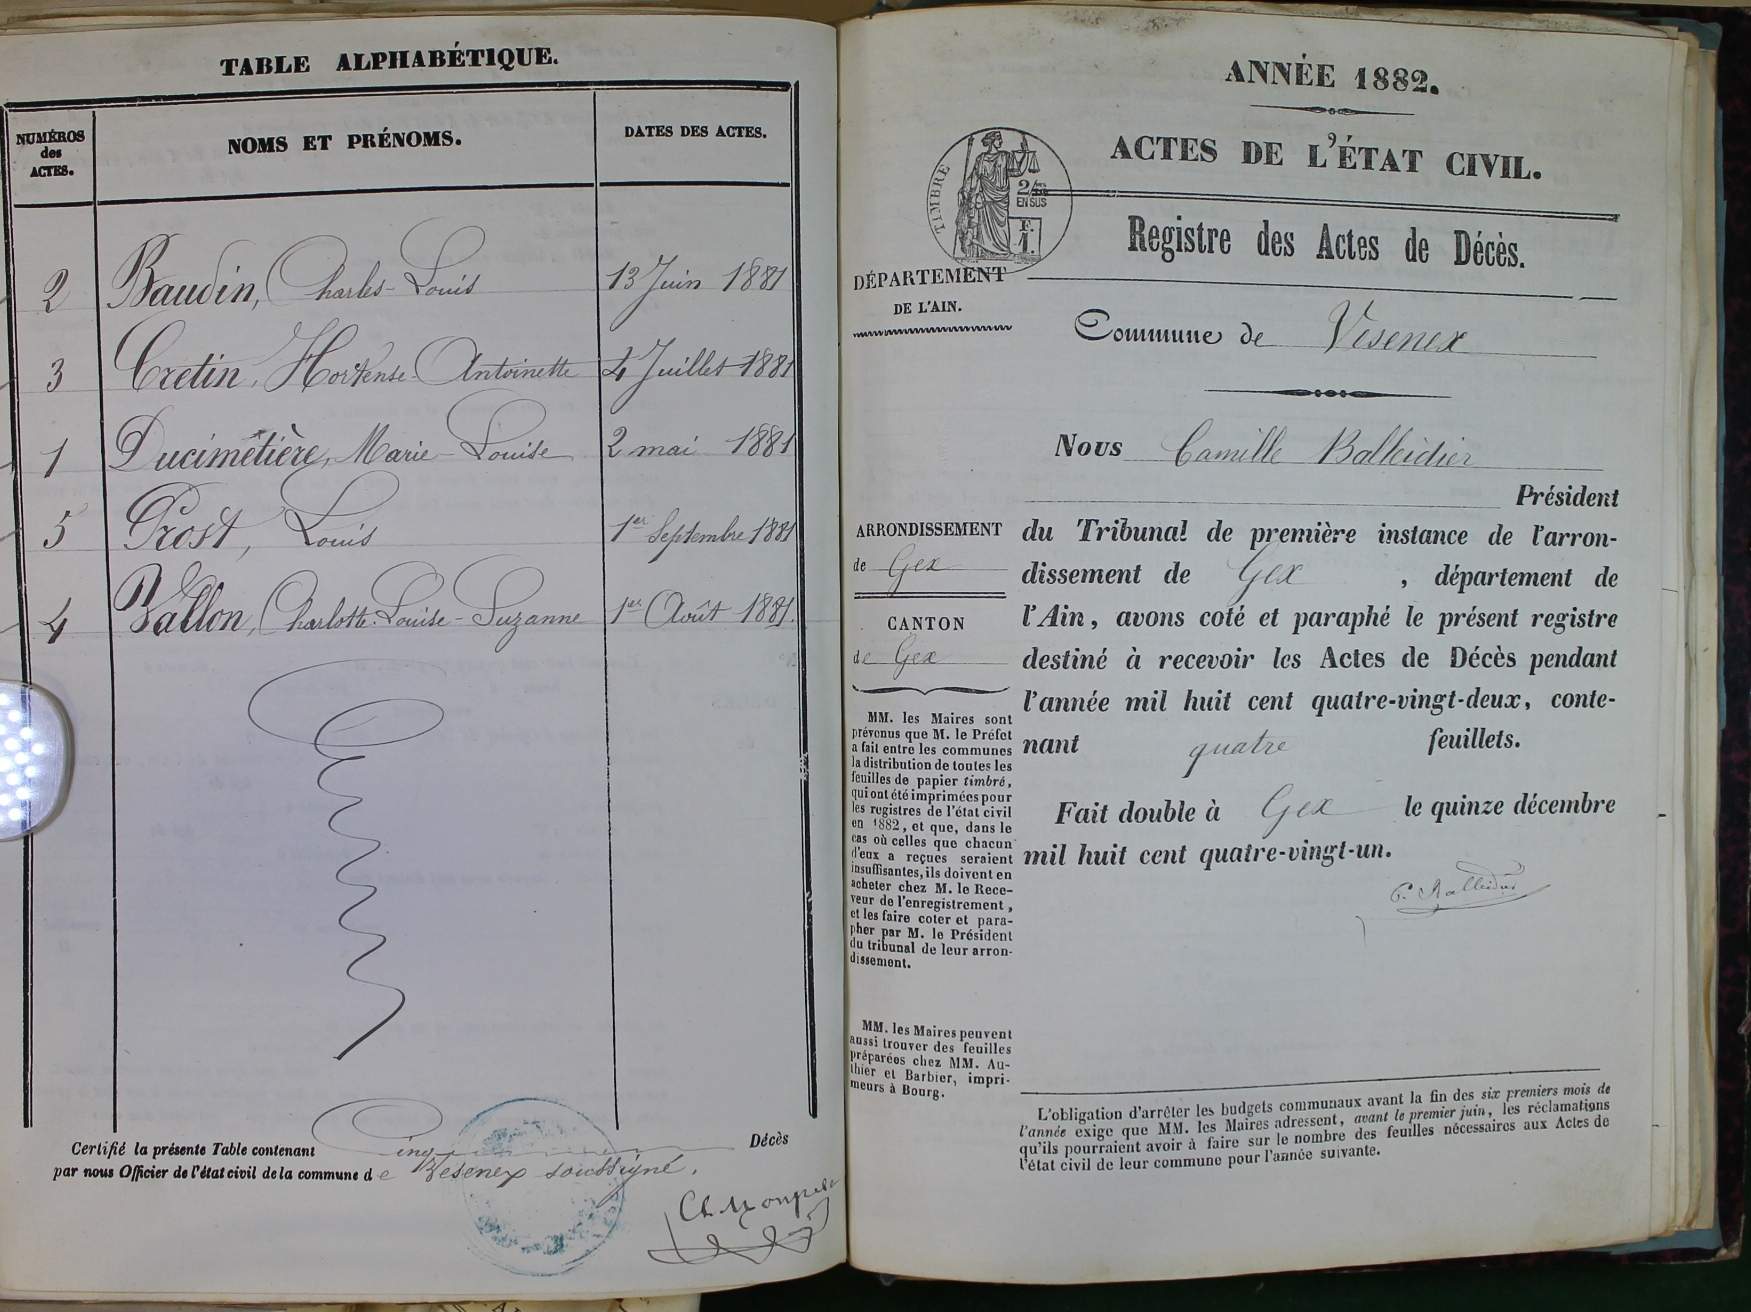 TABLE ALPHABÉTIQUE.
NUMÉROS
des
ACTES.
NOMS ET PRÉNOMS.
DATES DES ACTES.
2 Baudin, Charles-Louis 13 Juin 1881
3 Cretin, Hortense-Antoinette 4 Juillet 1881
1 Ducimetière, Marie-Louise 2 mai 1881
5 Prost, Louis 1er Septembre 1881
4 Vallon, Charlotte-Louise-Suzanne 1er Août 1881.
Certifié la présente Table contenant Cinq Décès
par nous Officier de l'état civil de la commune de Vesenex soussigné.
ANNÉE 1882.
ACTES DE L'ÉTAT CIVIL.
TIMBRE
2/10es
EN SUS
F.
1.
Registre des Actes de Décès.
DÉPARTEMENT
DE L'AIN.
Commune de Vesenex
Nous Camille Balleidier
Président
du Tribunal de première instance de l'arron-
dissement de Gex, département de
l'Ain, avons coté et paraphé le présent registre
destiné à recevoir les Actes de Décès pendant
l'année mil huit cent quatre-vingt-deux, conte-
nant quatre feuillets.
Fait double à Gex le quinze décembre
mil huit cent quatre-vingt-un.
C. Balleidier
ARRONDISSEMENT
de Gex
CANTON
de Gex
MM. les Maires sont
prévenus que M. le Préfet
a fait entre les communes
la distribution de toutes les
feuilles de papier timbré,
qui ont été imprimées pour
les registres de l'état civil
en 1882, et que, dans le
cas où celles que chacun
d'eux a reçues seraient
insuffisantes, ils doivent en
acheter chez M. le Rece-
veur de l'enregistrement,
et les faire coter et para-
pher par M. le Président
du tribunal de leur arron-
dissement.
MM. les Maires peuvent
aussi trouver des feuilles
préparées chez MM. Au-
thier et Barbier, impri-
meurs à Bourg.
L'obligation d'arrêter les budgets communaux avant la fin des six premiers mois de
l'année exige que MM. les Maires adressent, avant le premier juin, les réclamations
qu'ils pourraient avoir à faire sur le nombre des feuilles nécessaires aux Actes de
l'état civil de leur commune pour l'année suivante.